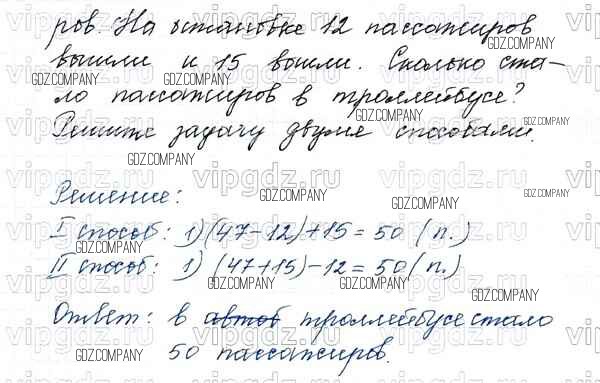 ров. На остановке 12 пассажиров
вышли и 15 вошли. Сколько ста-
ло пассажиров в троллейбусе?
Решите задачу двумя способами.
Решение:
I способ: 1) (47-12)+15=50 (п.)
II способ: 1) (47+15)-12=50 (п.)
Ответ: в автоб троллейбусе стало
50 пассажиров.
vipgdz.ru
GDZ.COMPANY